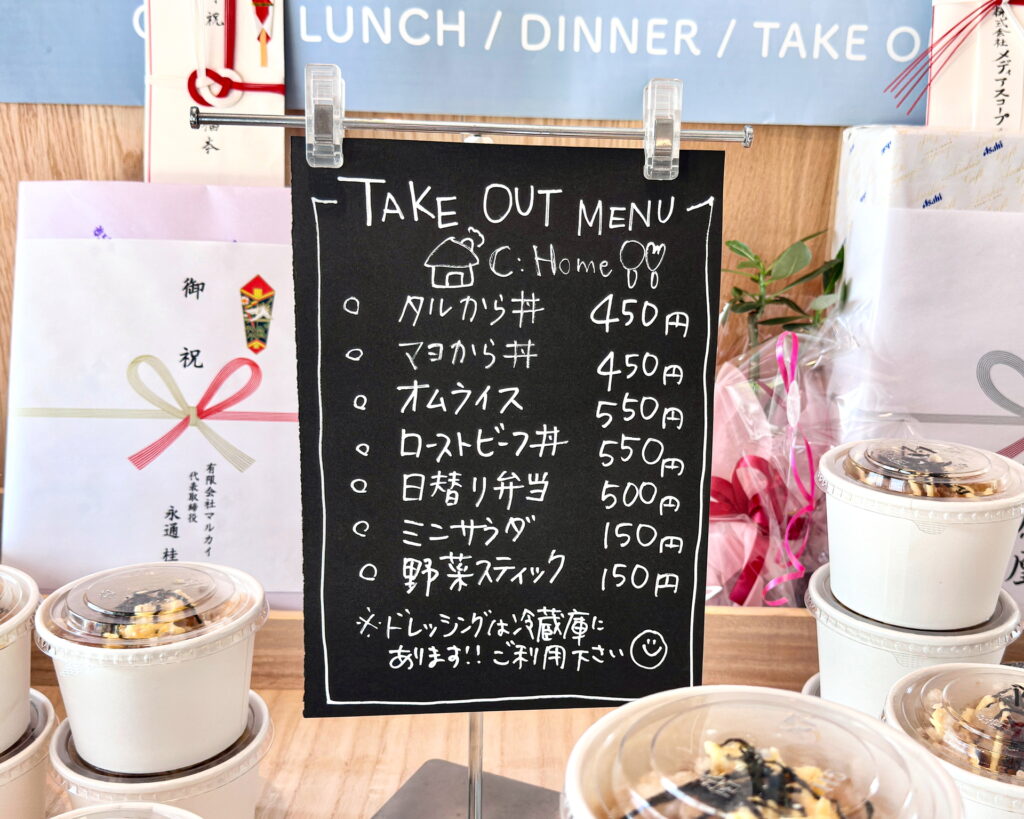 LUNCH / DINNER / TAKE O
祝
株式会社メディアスコープ
Asahi
Asahi
御祝
有限会社マルカイ
代表取締役
永通 桂
TAKE OUT MENU
C:Home
○ タルから丼 450円
○ マヨから丼 450円
○ オムライス 550円
○ ローストビーフ丼 550円
○ 日替り弁当 500円
○ ミニサラダ 150円
○ 野菜スティック 150円
※ドレッシングは冷蔵庫に
あります!! ご利用下さい